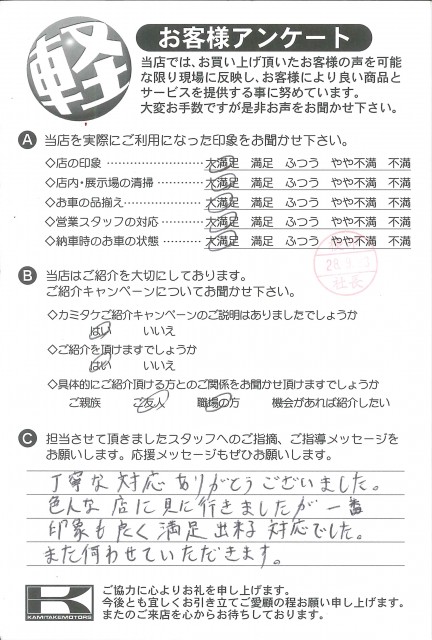 軽
お客様アンケート
当店では、お買い上げ頂いたお客様の声を可能
な限り現場に反映し、お客様により良い商品と
サービスを提供する事に努めています。
大変お手数ですが是非お声をお聞かせ下さい。
A 当店を実際にご利用になった印象をお聞かせ下さい。
◇店の印象 大満足 満足 ふつう やや不満 不満
◇店内・展示場の清掃 大満足 満足 ふつう やや不満 不満
◇お車の品揃え 大満足 満足 ふつう やや不満 不満
◇営業スタッフの対応 大満足 満足 ふつう やや不満 不満
◇納車時のお車の状態 大満足 満足 ふつう やや不満 不満
社長
B 当店はご紹介を大切にしております。
ご紹介キャンペーンについてお聞かせ下さい。
◇カミタケご紹介キャンペーンのご説明はありましたでしょうか
はい いいえ
◇ご紹介を頂けますでしょうか
はい いいえ
◇具体的にご紹介頂ける方とのご関係をお聞かせ頂けますでしょうか
ご親族 ご友人 職場の方 機会があれば紹介したい
C 担当させて頂きましたスタッフへのご指摘、ご指導メッセージを
お願いします。応援メッセージもぜひお願いします。
丁寧な対応ありがとうございました。
色んな店に見に行きましたが一番
印象も良く満足出来る対応でした。
また伺わせていただきます。
K
KAMITAKEMOTORS
ご協力に心よりお礼を申し上げます。
今後とも宜しくお引き立てご愛顧の程お願い申し上げます。
またのご来店を心からお待ちしております。